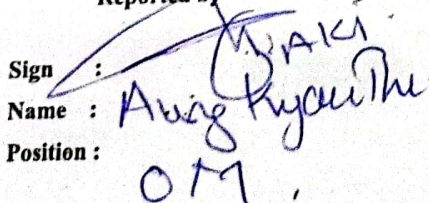 Reported by
Sign :
Name : Aung Kyaw Thu
Position :
OM